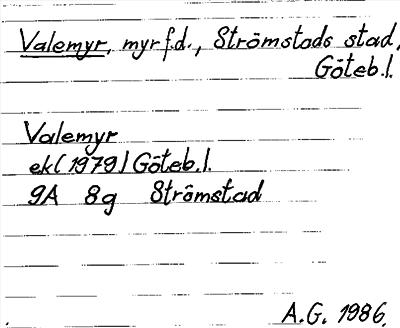 Valemyr, myr f.d., Strömstads stad,
Göteb.l.
Valemyr
ek (1979) Göteb.l.
9A 8g Strömstad
A.G. 1986.